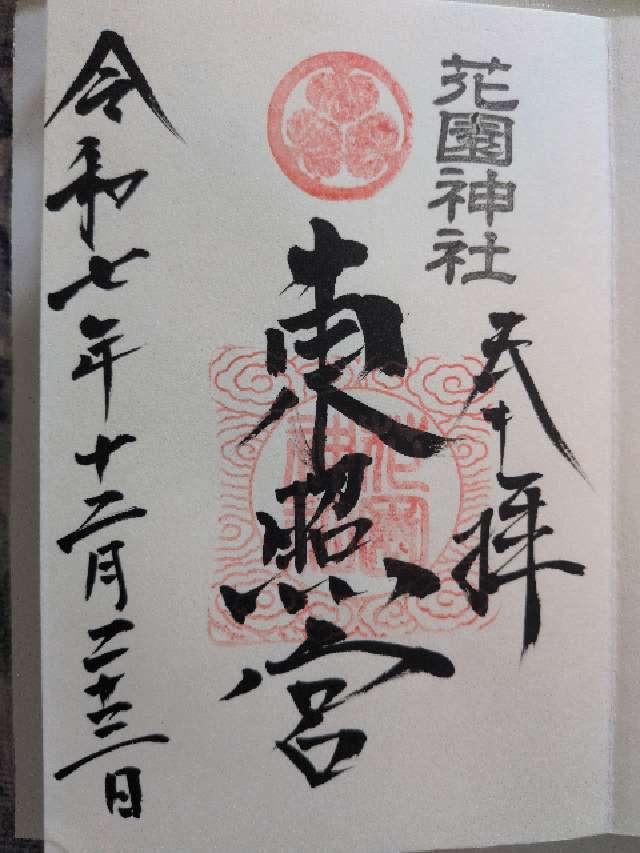 花園神社
奉拝
東照宮
花園
神社
令和七年十二月二十三日